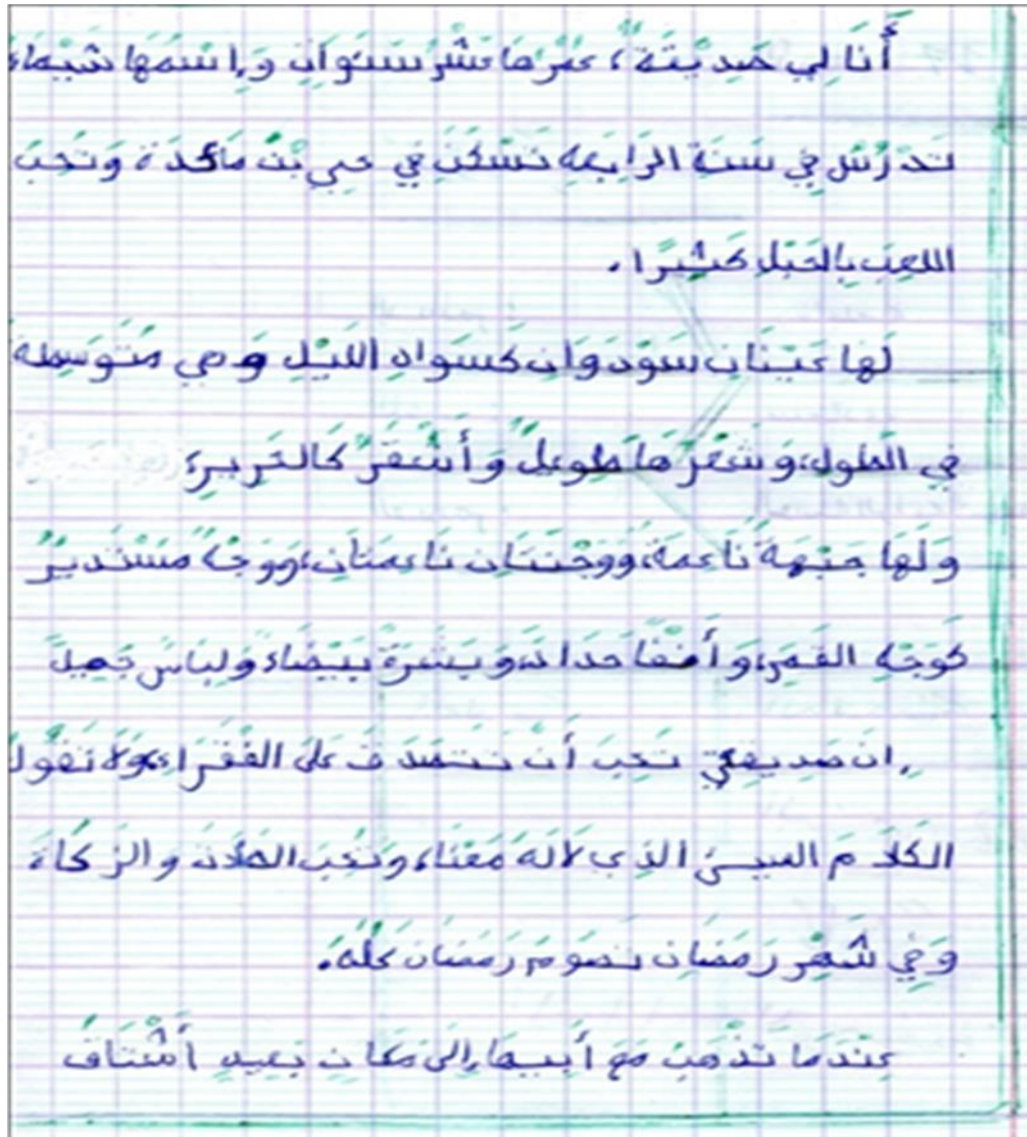 أَنَا لِي صَدِيقَةٌ، عُمْرُهَا عَشْرُ سَنَوَاتٍ وَإِسْمُهَا شَيْمَاءَ
تَدْرُسُ فِي سَنَةِ الرَابِعَة تَسْكُنُ فِي حَيِ بْنُ مَاكدَة وَتُحِبُ
اللعِبَ بِالحَبْلِ كَثِيرًا.
لَهَا عَيْنَانِ سَوْدَوَانِ كَسَوَادِ اللَيْلِ وَهِي مُتَوَسِطَة
فِي الطُولِ، وَشَعْرُهَا طَوِيلٌ وَأَشْقَرٌ كَالحَرِيرِ،
وَلَهَا جَبْهَةٌ نَاعِمَة، وَوَجْنَتَانِ نَاعِمَتَانِ، وَوَجْهٌ مُسْتَدِيرٌ
كَوَجْهِ القَمَرِ، وَأَنْفًا حَدَادَ، وَبَشَرَةٌ بَيْضَاءَ وَلِبَاسٌ جَمِيلٌ
إِنَ صَدِيقَتِي تُحِبُ أَنْ تَتَصَدَقَ عَلَى الفُقَرَاءِ، وَلَا تَقُولُ
الكَلَامَ السَيئَ الَذِي لَا لَهُ مَعْنَاه وَتُحِبُ الصَلَاتَ وَالزَكَاةَ
وَفِي شَهْرِ رَمَضَانِ تَصُومُ رَمَضَانَ كُلُهُ.
عِنْدَمَا تَذْهَبُ مَعَ أَبِيهَا إِلَى مَكَانٍ بَعِيدٍ أَشْتَاقُ